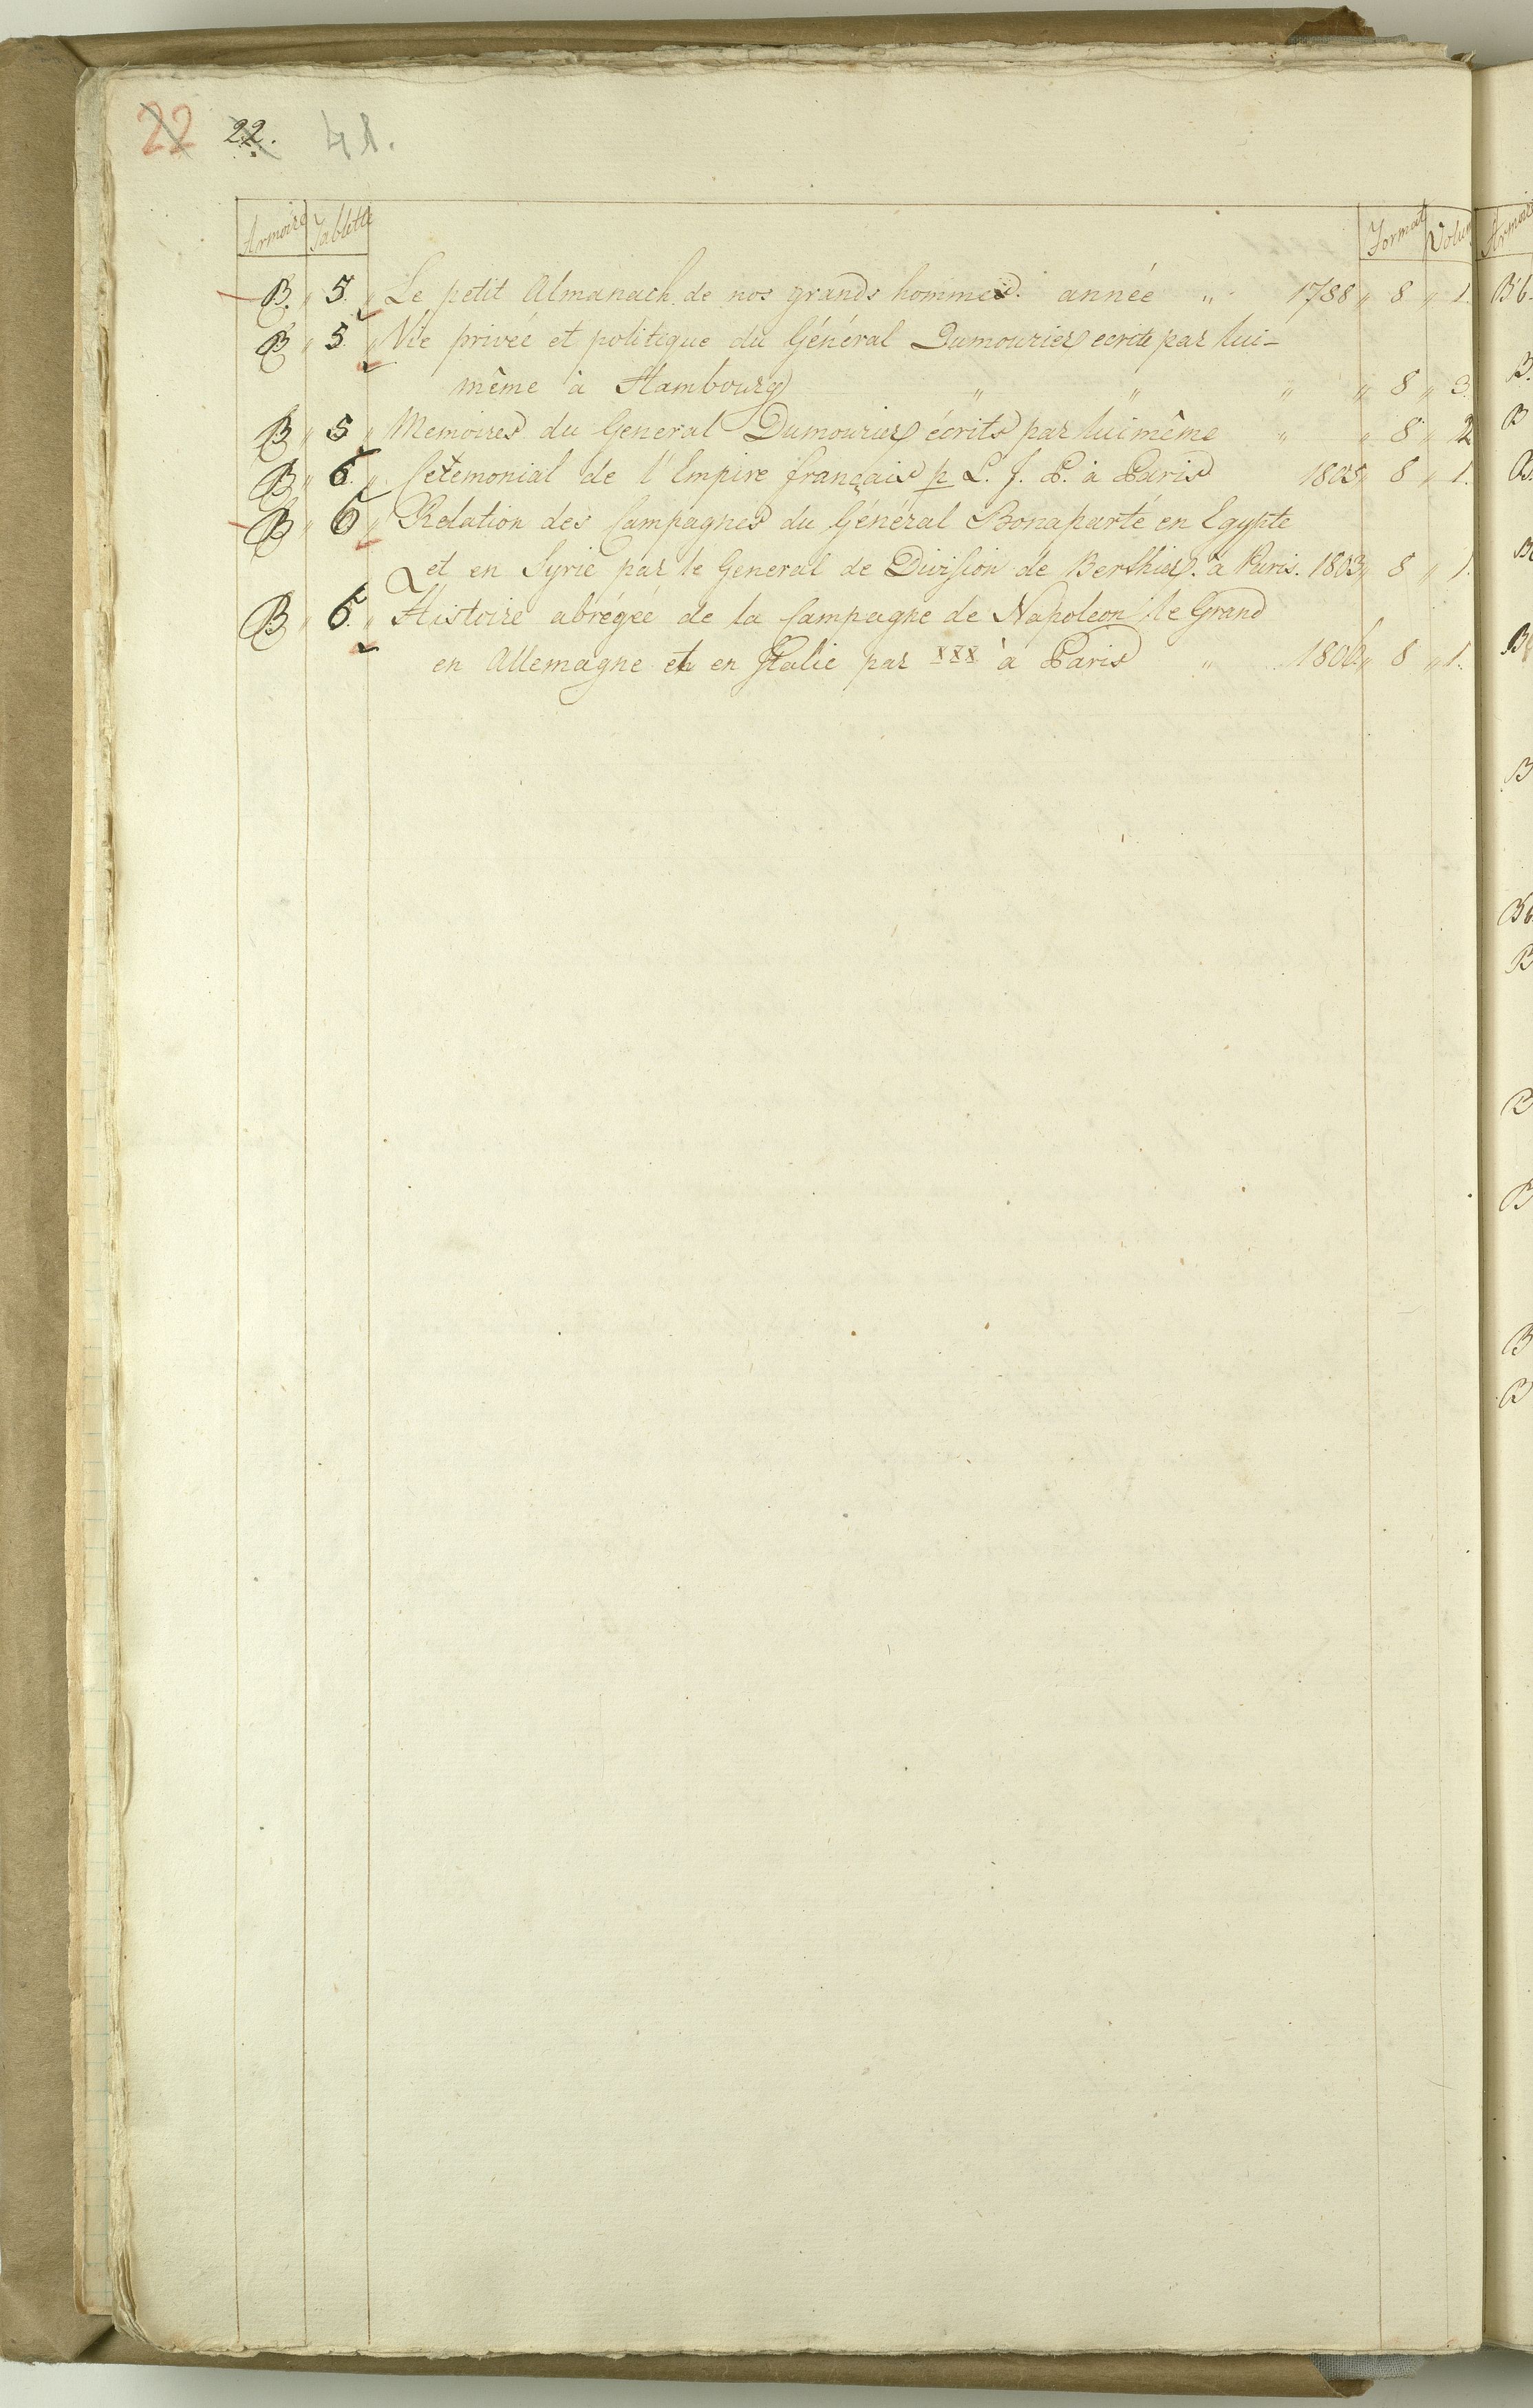 22 22. 41.
Armoire Tablette Format Volum
B. „ 5. „ Le petit Almanach de nos grands hommes. année „ 1788 „ 8 „ 1.
B „ 5. „ Vie privée et politique du Général Dumourier ecrite par lui-
même à Hambourg „ „ „ „ 8 „ 3.
B „ 5 „ Memoires du General Dumourier écrits par lui même „ „ 8 „ 2
B „ 6. „ Ceremonial de l'Empire français p L. J. P. à Paris 1805 „ 8 „ 1.
B „ 6 „ Relation des Campagnes du Général Bonaparte en Egypte
et en Syrie par le General de Division de Berthier. à Paris. 1803 „ 8 „ 1.
B „ 6. „ Histoire abrégée de la Campagne de Napoleon le Grand
en Allemagne et en Italie par XXX à Paris „ 1806 „ 8 „ 1.